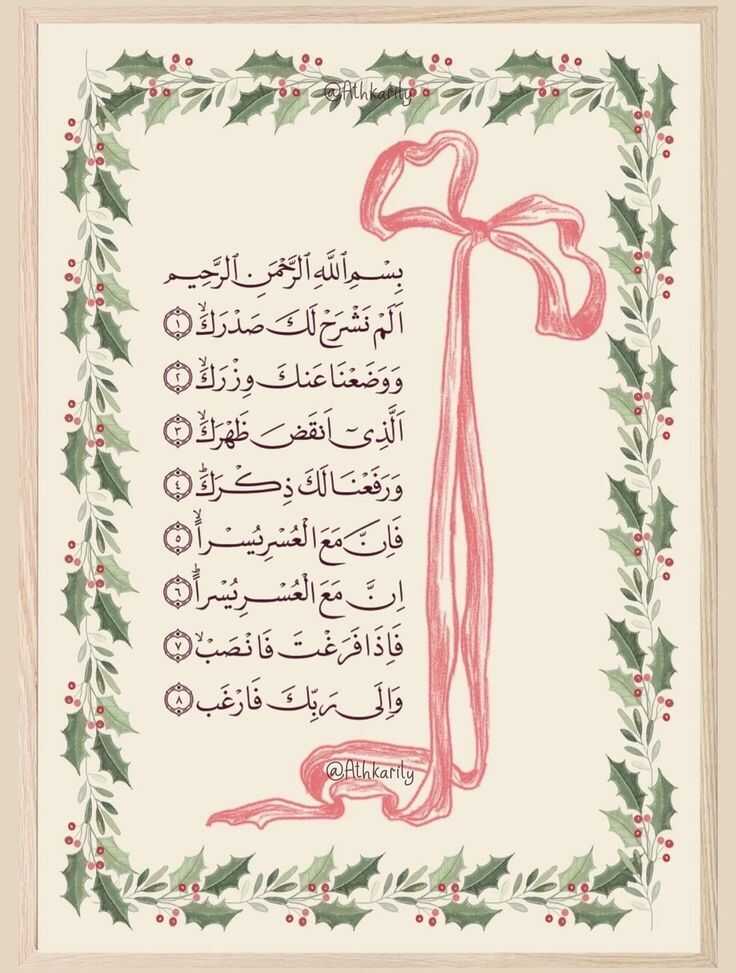 @Athkarily
بِسْمِ اللَّهِ الرَّحْمَنِ الرَّحِيمِ
اَلَمْ نَشْرَحْ لَكَ صَدْرَكَۙ ١
وَوَضَعْنَا عَنكَ وِزْرَكَۙ ٢
اَلَّذِىٓ اَنقَضَ ظَهْرَكَۙ ٣
وَرَفَعْنَا لَكَ ذِكْرَكَۗ ٤
فَاِنَّ مَعَ الْعُسْرِ يُسْراًۙ ٥
اِنَّ مَعَ الْعُسْرِ يُسْراًۗ ٦
فَاِذَا فَرَغْتَ فَانْصَبْۙ ٧
وَاِلَى رَبِّكَ فَارْغَب ٨
@Athkarily